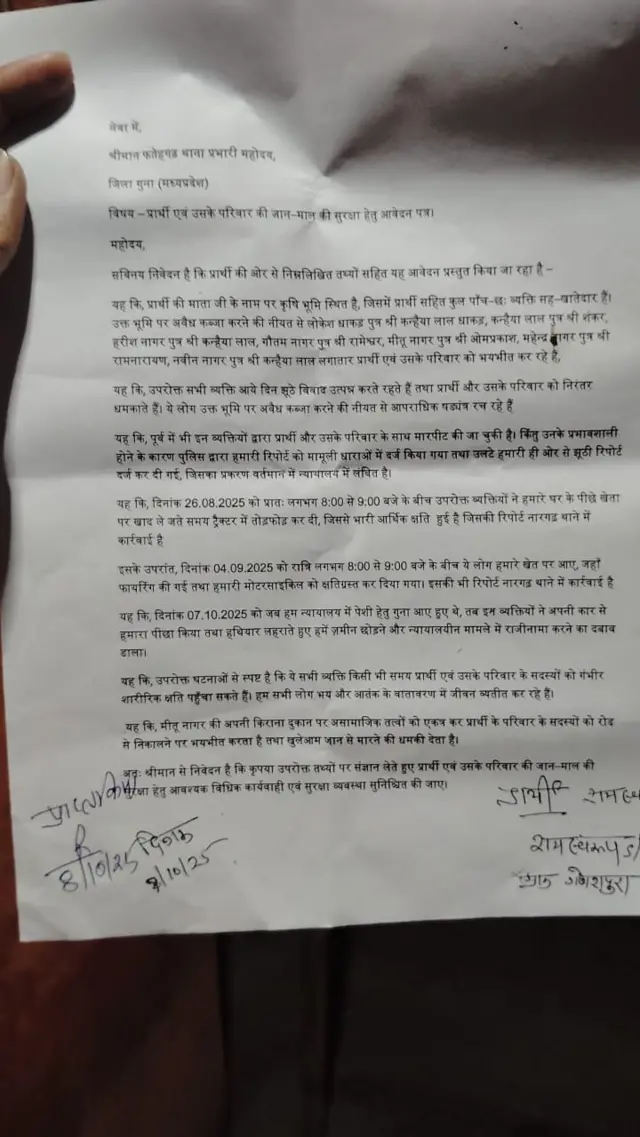 सेवा में,
श्रीमान फतेहगढ़ थाना प्रभारी महोदय,
जिला गुना (मध्यप्रदेश)
विषय – प्रार्थी एवं उसके परिवार की जान-माल की सुरक्षा हेतु आवेदन पत्र।
महोदय,
सविनय निवेदन है कि प्रार्थी की ओर से निम्नलिखित तथ्यों सहित यह आवेदन प्रस्तुत किया जा रहा है –
यह कि, प्रार्थी की माता जी के नाम पर कृषि भूमि स्थित है, जिसमें प्रार्थी सहित कुल पाँच-छः व्यक्ति सह-खातेदार हैं।
उक्त भूमि पर अवैध कब्जा करने की नीयत से लोकेश धाकड़ पुत्र श्री कन्हैया लाल धाकड़, कन्हैया लाल पुत्र श्री शंकर,
हरीश नागर पुत्र श्री कन्हैया लाल, गौतम नागर पुत्र श्री रामेश्वर, मीतू नागर पुत्र श्री ओमप्रकाश, महेन्द्र नागर पुत्र श्री
रामनारायण, नवीन नागर पुत्र श्री कन्हैया लाल लगातार प्रार्थी एवं उसके परिवार को भयभीत कर रहे हैं,
यह कि, उपरोक्त सभी व्यक्ति आये दिन झूठे विवाद उत्पन्न करते रहते हैं तथा प्रार्थी और उसके परिवार को निरंतर
धमकाते हैं। ये लोग उक्त भूमि पर अवैध कब्जा करने की नीयत से आपराधिक षड्यंत्र रच रहे हैं
यह कि, पूर्व में भी इन व्यक्तियों द्वारा प्रार्थी और उसके परिवार के साथ मारपीट की जा चुकी है। किंतु उनके प्रभावशाली
होने के कारण पुलिस द्वारा हमारी रिपोर्ट को मामूली धाराओं में दर्ज किया गया तथा उलटे हमारी ही ओर से झूठी रिपोर्ट
दर्ज कर दी गई, जिसका प्रकरण वर्तमान में न्यायालय में लंबित है।
यह कि, दिनांक 26.08.2025 को प्रातः लगभग 8:00 से 9:00 बजे के बीच उपरोक्त व्यक्तियों ने हमारे घर के पीछे खेता
पर खाद ले जते समय ट्रैक्टर में तोड़फोड़ कर दी, जिससे भारी आर्थिक क्षति हुई है जिसकी रिपोर्ट नारगढ़ थाने में
कार्रवाई है
इसके उपरांत, दिनांक 04.09.2025 को रात्रि लगभग 8:00 से 9:00 बजे के बीच ये लोग हमारे खेत पर आए, जहाँ
फायरिंग की गई तथा हमारी मोटरसाइकिल को क्षतिग्रस्त कर दिया गया। इसकी भी रिपोर्ट नारगढ़ थाने में कार्रवाई है
यह कि, दिनांक 07.10.2025 को जब हम न्यायालय में पेशी हेतु गुना आए हुए थे, तब इन व्यक्तियों ने अपनी कार से
हमारा पीछा किया तथा हथियार लहराते हुए हमें ज़मीन छोड़ने और न्यायालयीन मामले में राजीनामा करने का दबाव
डाला।
यह कि, उपरोक्त घटनाओं से स्पष्ट है कि ये सभी व्यक्ति किसी भी समय प्रार्थी एवं उसके परिवार के सदस्यों को गंभीर
शारीरिक क्षति पहुँचा सकते हैं। हम सभी लोग भय और आतंक के वातावरण में जीवन व्यतीत कर रहे हैं।
यह कि, मीतू नागर की अपनी किराना दुकान पर असामाजिक तत्वों को एकत्र कर प्रार्थी के परिवार के सदस्यों को रोड
से निकालने पर भयभीत करता है तथा खुलेआम जान से मारने की धमकी देता है।
अतः श्रीमान से निवेदन है कि कृपया उपरोक्त तथ्यों पर संज्ञान लेते हुए प्रार्थी एवं उसके परिवार की जान-माल की
सुरक्षा हेतु आवश्यक विधिक कार्यवाही एवं सुरक्षा व्यवस्था सुनिश्चित की जाए।
प्रार्थी
8/10/25 दिनांक
8/10/25
रामस्वरूप
ग्राम गणेशपुरा